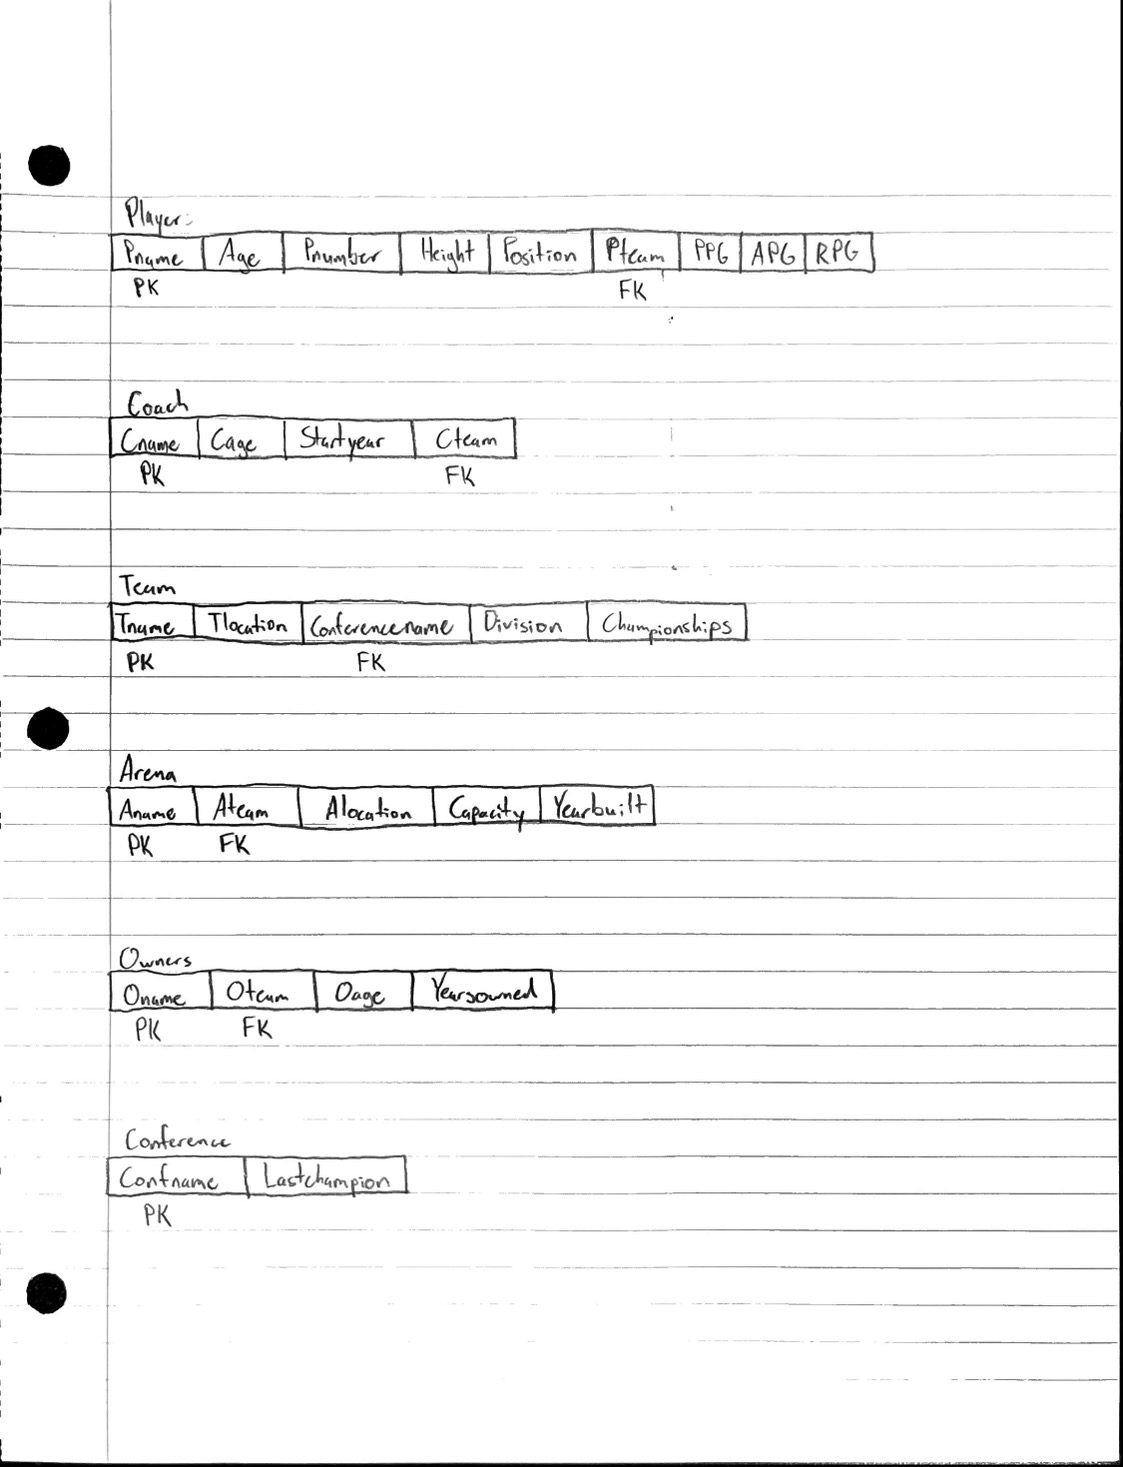 Player:
Pname Age Pnumber Height Position Pteam PPG APG RPG
PK FK
Coach
Cname Cage Startyear Cteam
PK FK
Team
Tname Tlocation Conferencename Division Championships
PK FK
Arena
Aname Ateam Alocation Capacity Yearbuilt
PK FK
Owners
Oname Oteam Oage Yearsowned
PK FK
Conference
Confname Lastchampion
PK